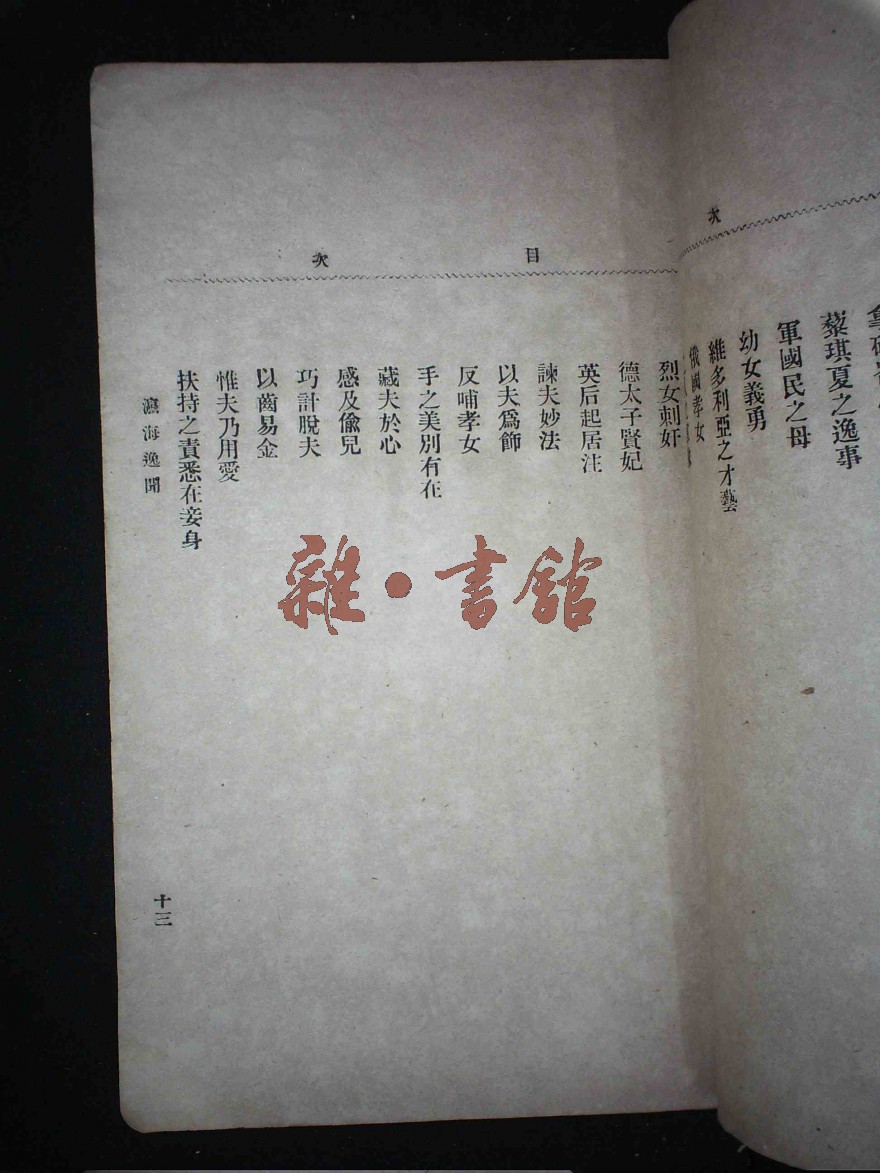 次
藜琪夏之逸事
軍國民之母
幼女義勇
維多利亞之才藝
俄國孝女
目次
烈女刺奸
德太子賢妃
英后起居注
諫夫妙法
以夫爲飾
反哺孝女
手之美別有在
藏夫於心
感及偸兒
巧計脫夫
以齒易金
惟夫乃用愛
扶持之責悉在妾身
瀛海逸聞
十三
雜·書館